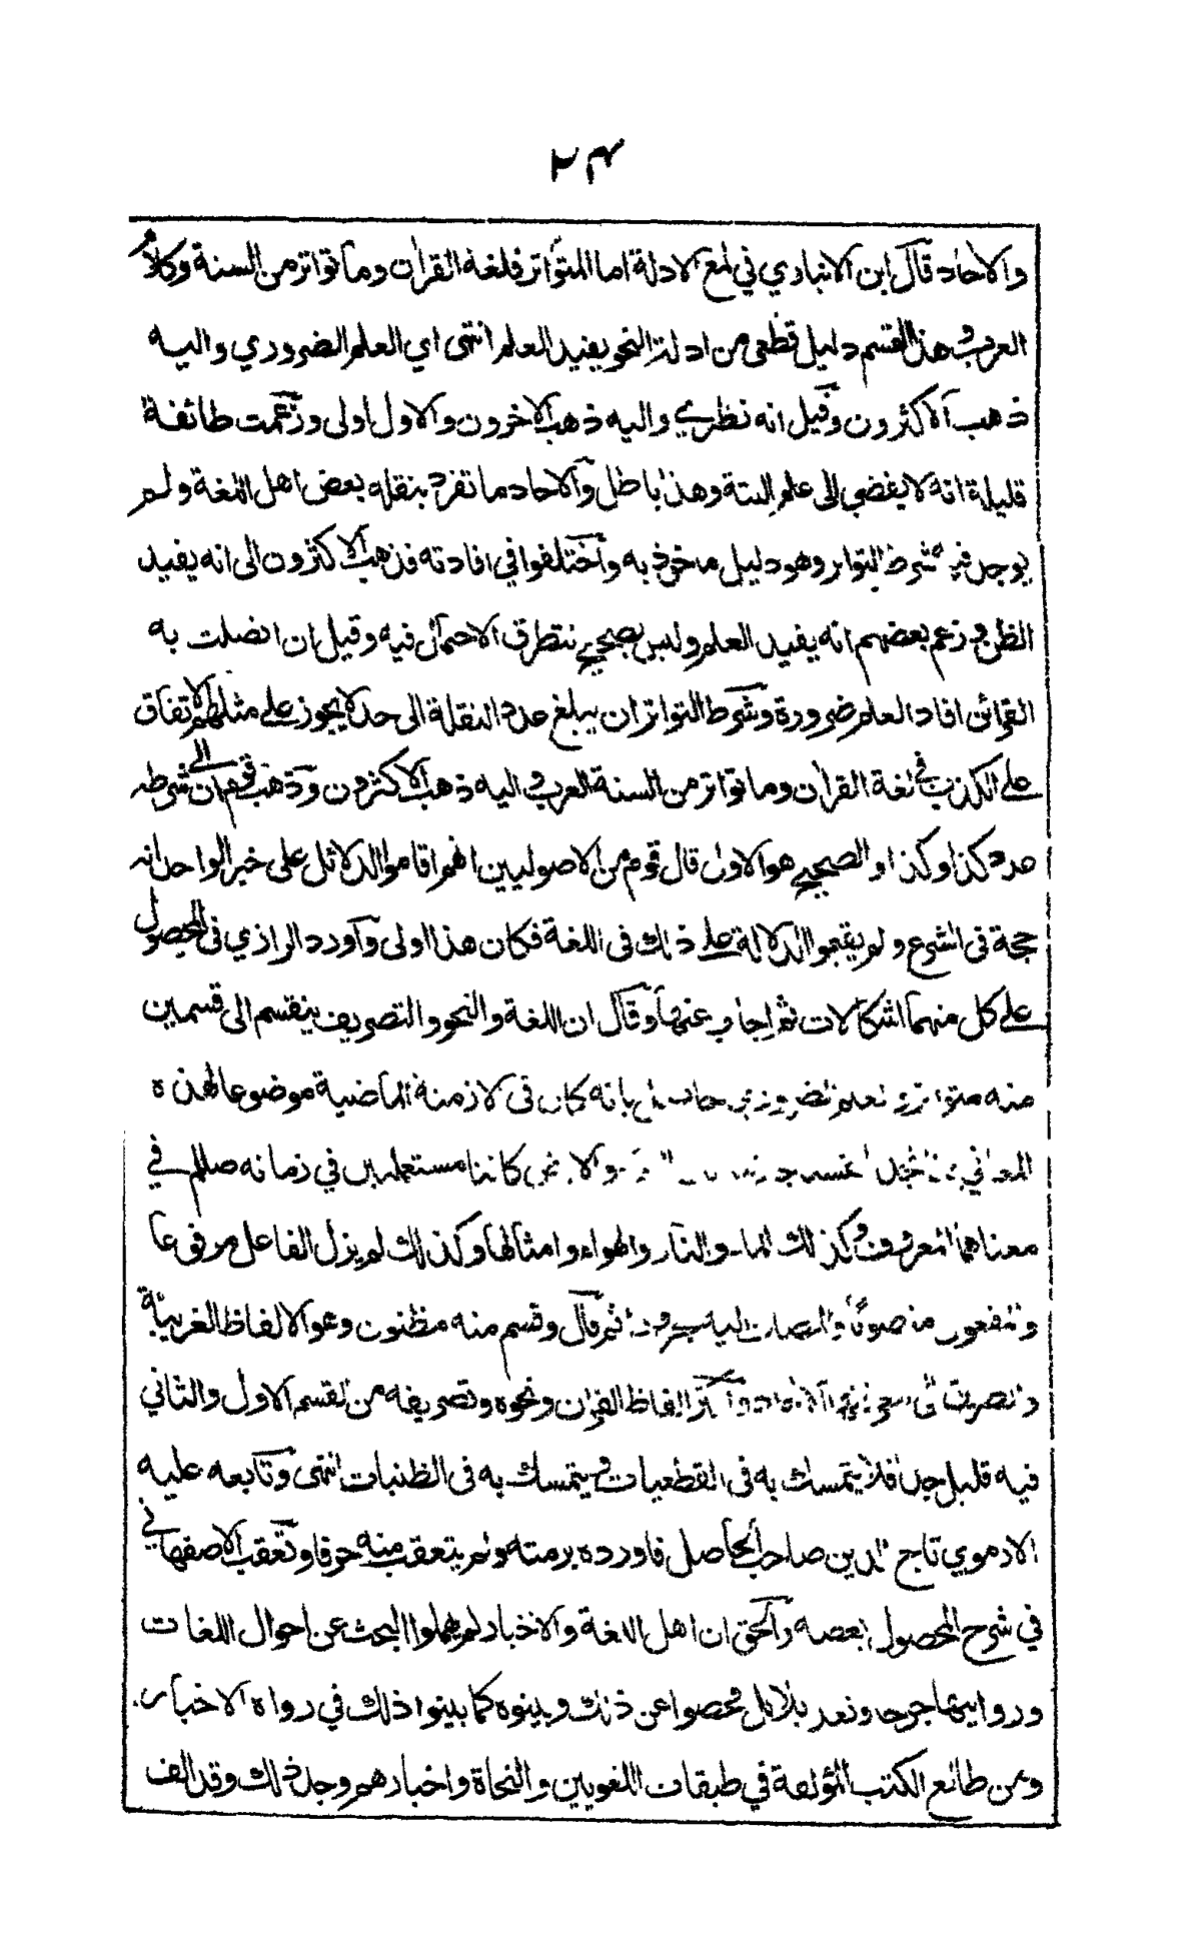 ٢٣
والاحاد قال ابن الانباري في لمع الادلة اما المتواتر فلغة القران وما تواتر من السنة وكلام
العرب وهذا القسم دليل قطعي من ادلة النحو يفيد العلم انتهى اي العلم الضروري واليه
ذهب الاكثرون وقيل انه نظري واليه ذهب الاخرون والاول اولى وزعمت طائفة
قليلة انه لا يفضي الى علم البتة وهذا باطل والاحاد ما تفرد بنقله بعض اهل اللغة ولم
يوجد فيه شرط التواتر وهو دليل ماخوذ به واختلفوا في افادته فذهب الاكثرون الى انه يفيد
الظن وزعم بعضهم انه يفيد العلم وليس بصحيح لتطرق الاحتمال فيه وقيل ان اتصلت به
القرائن افاد العلم ضرورة وشرط التواتر ان يبلغ عدد النقلة الى حد لا يجوز على مثلهم الاتفاق
على الكذب في لغة القران وما تواتر من السنة العرب واليه ذهب الاكثرون وذهب قوم الى ان شرطه
عدد كذا وكذا والصحيح هو الاول قال قوم من الاصوليين انهم اقاموا الدلائل على خبر الواحد انه
حجة في الشرع ولم يقيموا الدلالة على ذلك في اللغة فكان هذا اولى واورد الرازي في المحصول
على كل منهما اشكالات ثم اجاب عنها وقال ان اللغة والنحو والتصريف ينقسم الى قسمين
منه متواتر والعلم الضروري حاصل بانه كان في الازمنة الماضية موضوعا لهذه
المعاني فانا نجد انفسنا جازمة والارض كانتا مستعملين في زمانه صللم في
معناهما المعروف وكذلك الماء والنار والهواء وامثالها وكذلك لم يزل الفاعل مرفوعا
والمفعول منصوبا والمضاف اليه مجرورا ثم قال وقسم منه مظنون وهو الالفاظ الغريبة
والطريق الى معرفتها الاحاد واكثر الفاظ القران ونحوه وتصريفه من القسم الاول والثاني
فيه قليل جدا فلا يتمسك به في القطعيات ويتمسك به في الظنيات انتهى وتابعه عليه
الارموي تاج الدين صاحب الحاصل فاورده برمته ولم يتعقب منه حرفا وتعقب الاصفهاني
في شرح المحصول بعضه والحق ان اهل اللغة والاخبار لم يهملوا البحث عن احوال اللغات
ورواتها جرحا وتعديلا بل فحصوا عن ذلك وبينوه كما بينوا ذلك في رواة الاخبار
ومن طالع الكتب المؤلفة في طبقات اللغويين والنحاة واخبارهم وجد ذلك وقد الف